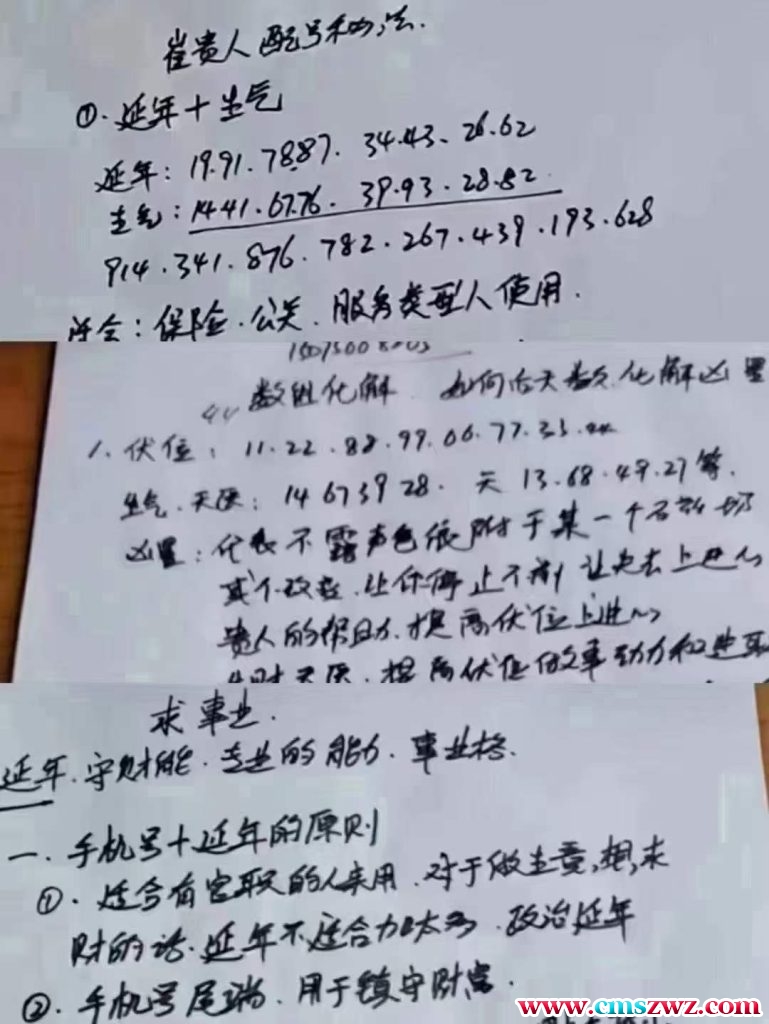 崔贵人配号和办法.
①.延年+生气
延年:19.91.7887.34.43.26.62
生气:1441.6776.39.93.28.82.
914.341.876.782.267.439.193.628
适合:保险.公关.服务类型人使用.
数组化解 如何后天数化解凶星
1.伏位:11.22.88.99.66.77.33.44
生气.天医:14 67 39 28. 天 13.68.49.27等.
凶星:代表不露声色依附于某一个
或个改变.让你停止不前 让失去上进心
贵人的帮助.提高伏位上进心
天医.提高伏位做事动力和进取
求事业.
延年.守财能.专业的能力.事业格.
一.手机号+延年的原则
①.适合有官职的人实用.对于做生意,想,求
财的话.延年不适合加太多.政治延年
②.手机号尾端.用于镇守财富.
www.cmszwz.com